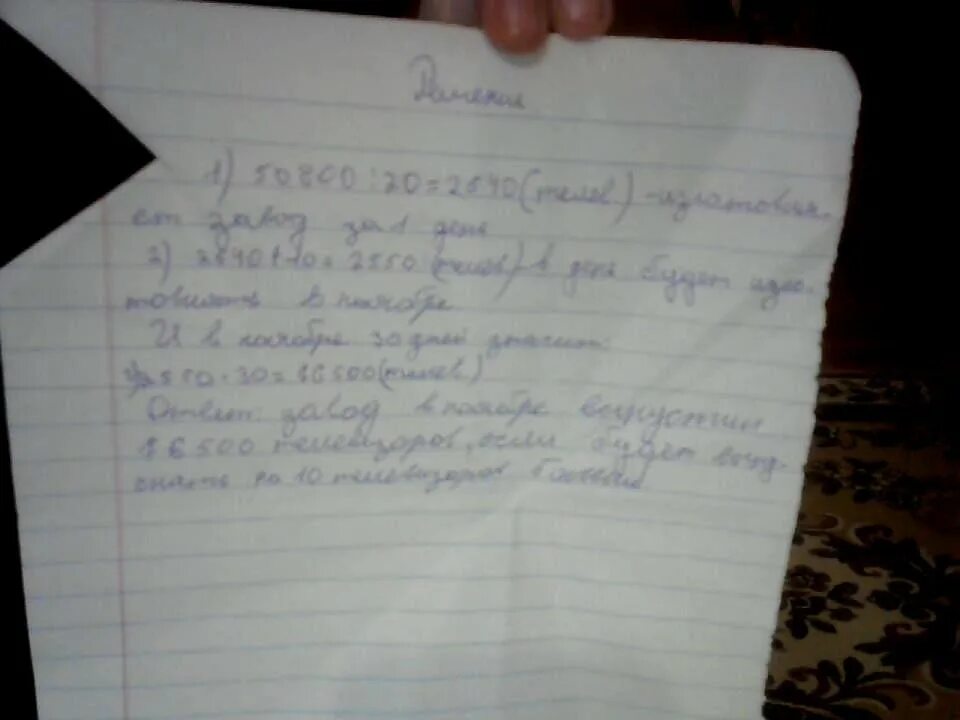 Решение
1) 50800:20=2540(телев)-изготовля-
ет завод за 1 день
2) 2540+10=2550(телев) в день будет изго-
товлять в ноябре
И в ноябре 30 дней значит:
3)2550·30=76500(телев)
Ответ: завод в ноябре выпустил
76500 телевизоров, если будет
по 10 телевизоров больше